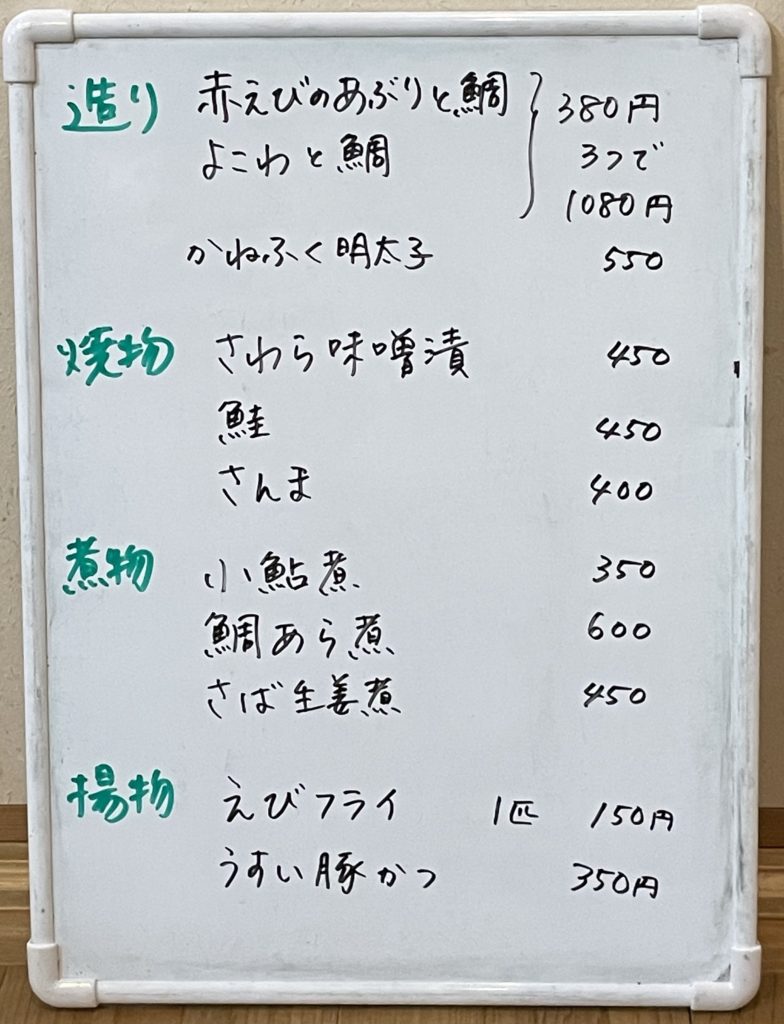 造り 赤えびのあぶりと鯛 380円
よこわと鯛 3つで
1080円
かねふく明太子 550
焼物 さわら味噌漬 450
鮭 450
さんま 400
煮物 小鮎煮 350
鯛あら煮 600
さば生姜煮 450
揚物 えびフライ 1匹 150円
うすい豚かつ 350円